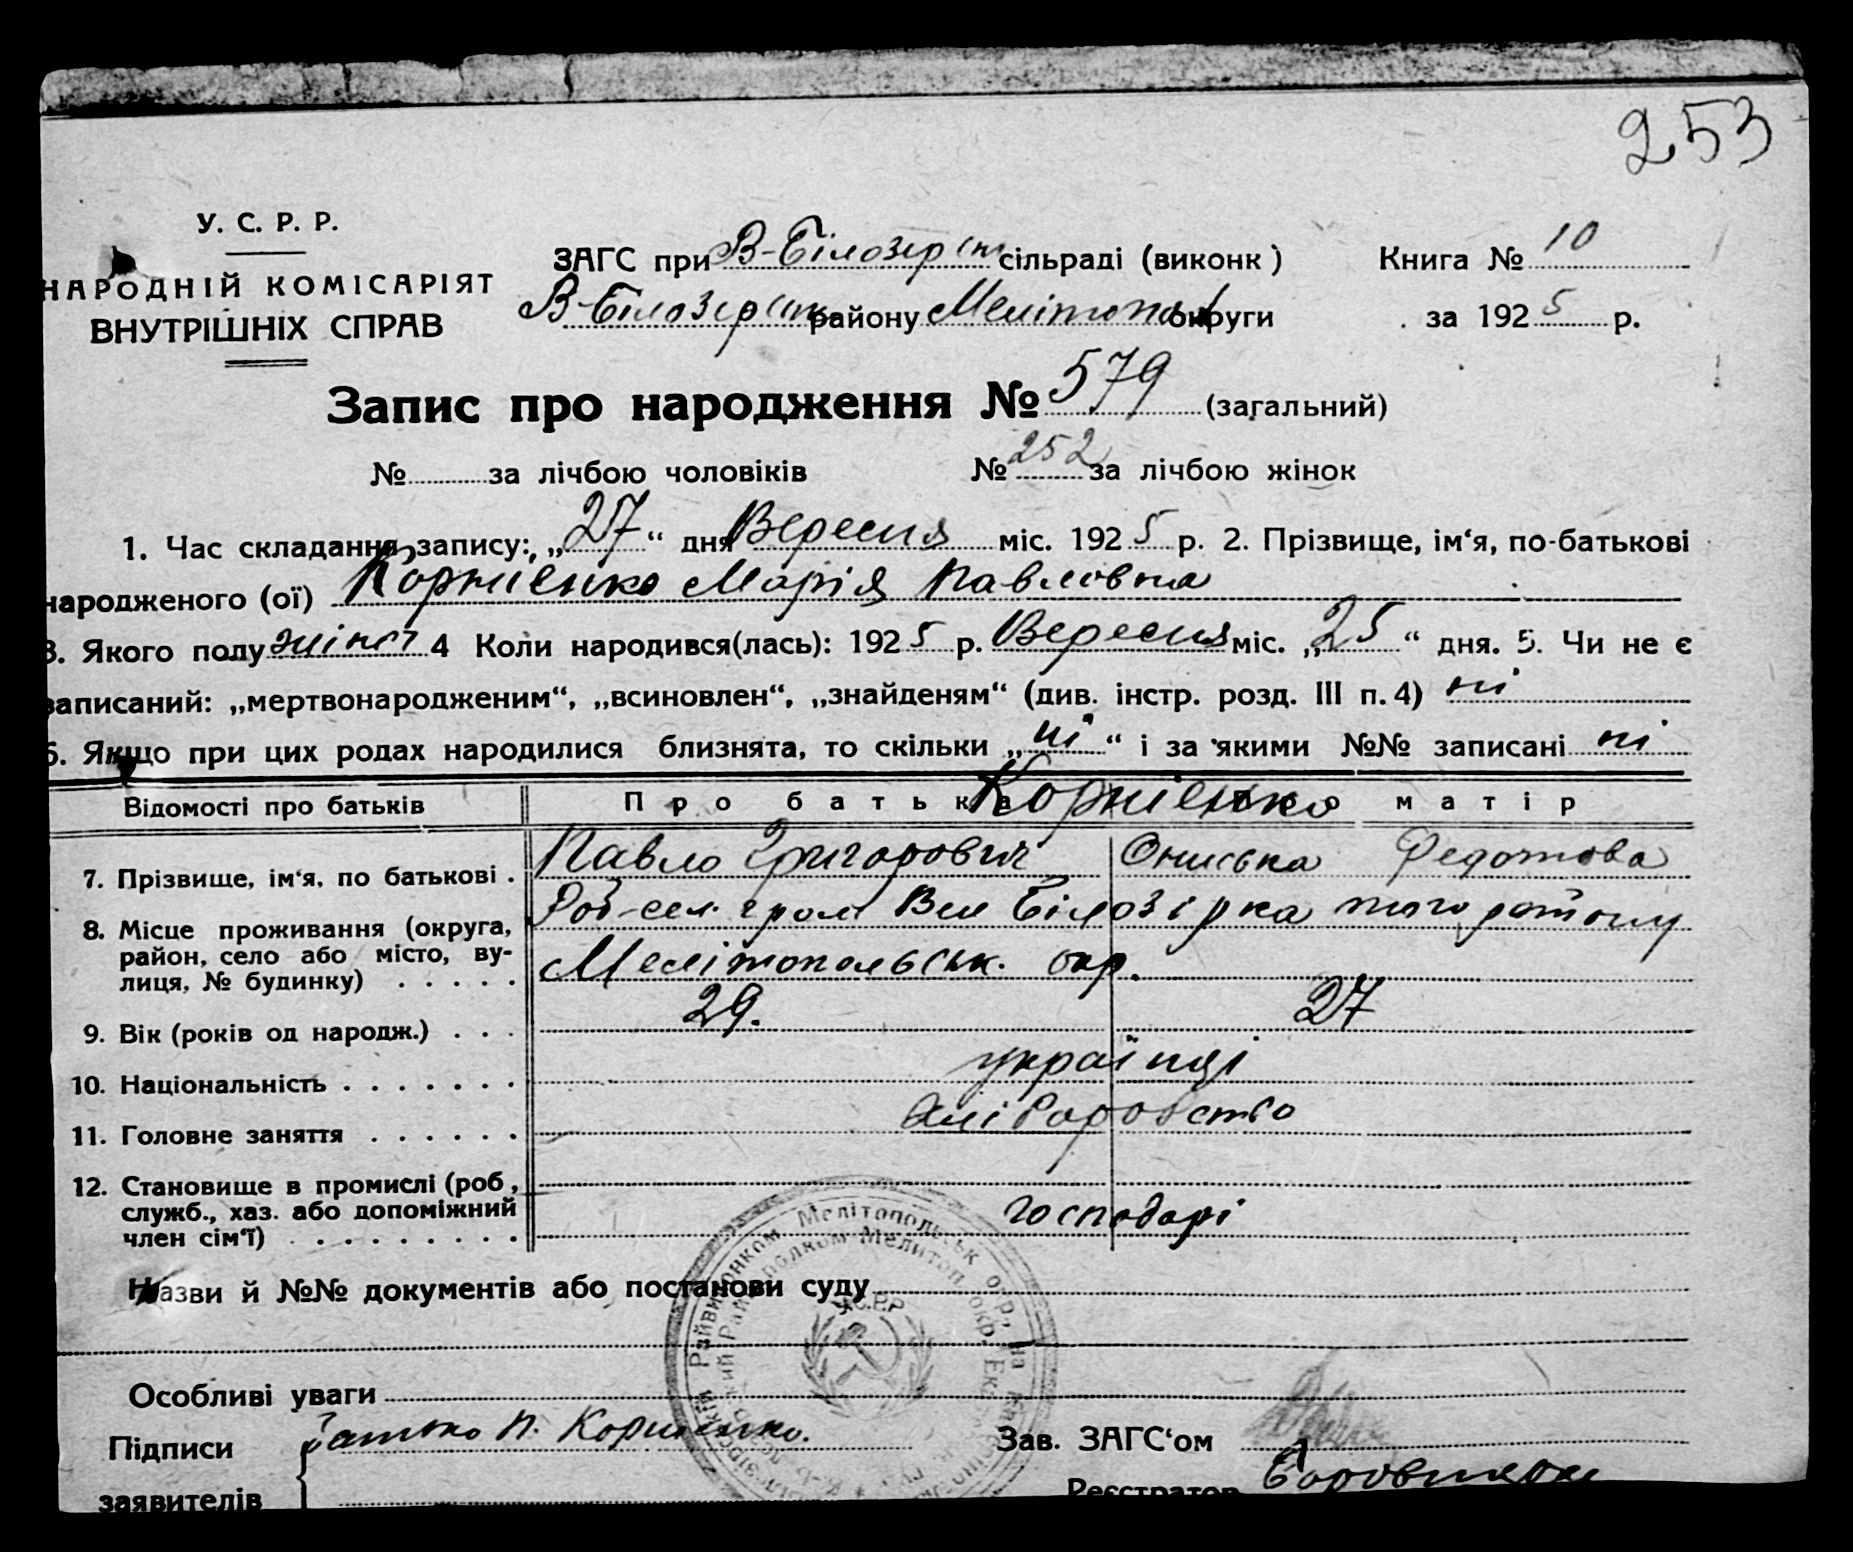 253
У. С. Р. Р.
НАРОДНІЙ КОМІСАРІЯТ
ВНУТРІШНІХ СПРАВ
ЗАГС при В-Білозірськ сільраді (виконк)
В-Білозірськ району Мелітопол округи
Книга № 10
за 1925 р.
Запис про народження № 579 (загальний)
№ за лічбою чоловіків № 252 за лічбою жінок
1. Час складання запису: „27“ дня Вересня міс. 1925 р. 2. Прізвище, ім‘я, по-батькові
народженого (ої) Корниенко Марія Павловна
3. Якого полу жіноч 4 Коли народився(лась): 1925 р. Вересня міс. „25“ дня. 5. Чи не є
записаний: „мертвонародженим“, „всиновлен“, „знайденям“ (див. інстр. розд. III п. 4) ні
6. Якщо при цих родах народилися близнята, то скільки „ні“ і за якими №№ записані ні
Відомості про батьків Про батька Про матір
Корнієнко
7. Прізвище, ім‘я, по батькові . Павло Григорович Ониська Федотова
8. Місце проживання (округа, район, село або місто, вулиця, № будинку) Вел Білозірка того району
Мелітопольськ. окр.
9. Вік (років од народж.) . . . 29. 27
10. Національність . . . . . . . українці
11. Головне заняття . . . . . . хліборобство
12. Становище в промислі (роб, служб., хаз. або допоміжний член сім‘ї) господарі
Назви й №№ документів або постанови суду
Особливі уваги
Підписи
заявителів
батько П. Корниенко.
Зав. ЗАГС‘ом
Реєстратор